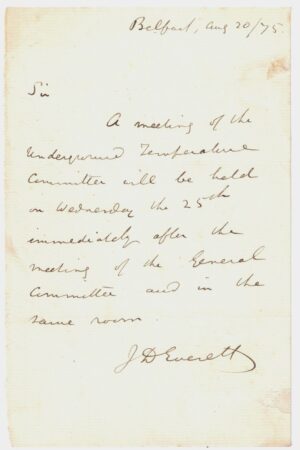 Belfast, Aug 20/75.
Sir
A meeting of the
Underground Temperature
Committee will be held
on Wednesday the 25th
immediately after the
meeting of the General
Committee and in the
same room.
J D Everett